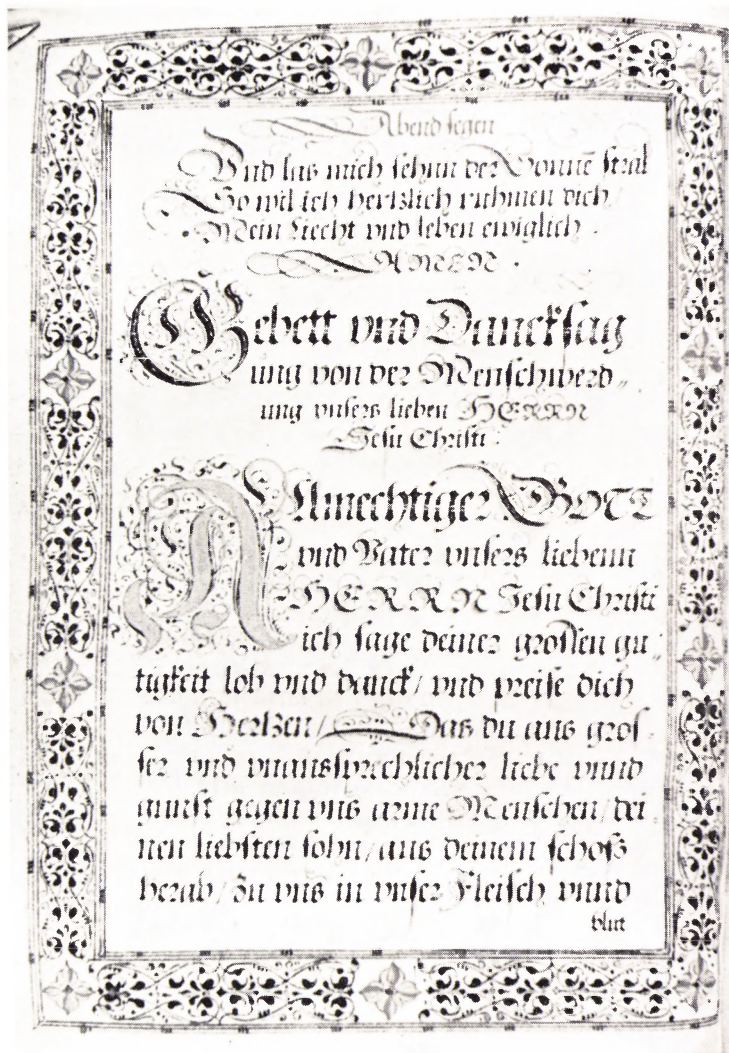 Abend segen
Vnd las mich sehnn der Sonne stral
So wil ich hertzlich ruhmen dich
Mein Liecht vnd leben ewiglich .
AMEN .
Gebett vnd Dancksag
ung von der Menschwerd„
ung vnsers lieben HERRN
Jesu Christi .
Allmechtiger GOTT
vnd Vater vnsers liebenn
HERRN Jesu Christi
ich sage deiner grossen gu„
tigkeit lob vnd danck/ vnd preise dich
von Hertzen/ Das du aus gros„
ser vnd vnaussprechlicher liebe vnnd
gunst gegen vns arme Menschen/ dei
nen liebsten sohn/ aus deinem schoß
herab/ zu vns in vnser Fleisch vnnd
blut